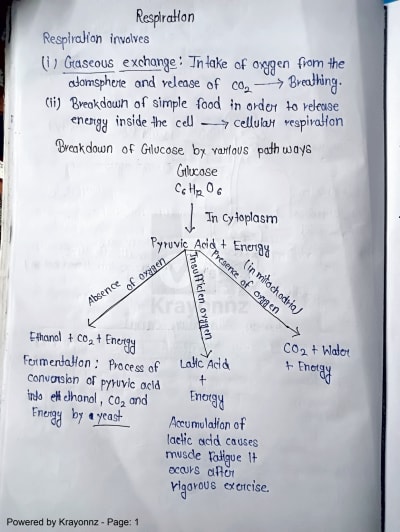 Respiration
Respiration involves
(i) Gaseous exchange: Intake of oxygen from the
atomsphere and release of CO2 → Breathing.
(ii) Breakdown of simple food in order to release
energy inside the cell → cellular respiration
Breakdown of Glucose by various path ways
Glucose
C6H12O6
In cytoplasm
Pyruvic Acid + Energy
Absence of oxygen
Insufficien oxygen
Presence of oxygen
(in mitochodria)
Ethanol + CO2 + Energy
Fermentation: Process of
conversion of pyruvic acid
into ethanol, CO2 and
Energy by a yeast
Latic Acid
+
Energy
Accumulation of
lactic acid causes
muscle fatigue It
occurs after
rigorous exercise.
CO2 + Water
+ Energy
Krayonnz
Powered by Krayonnz - Page: 1